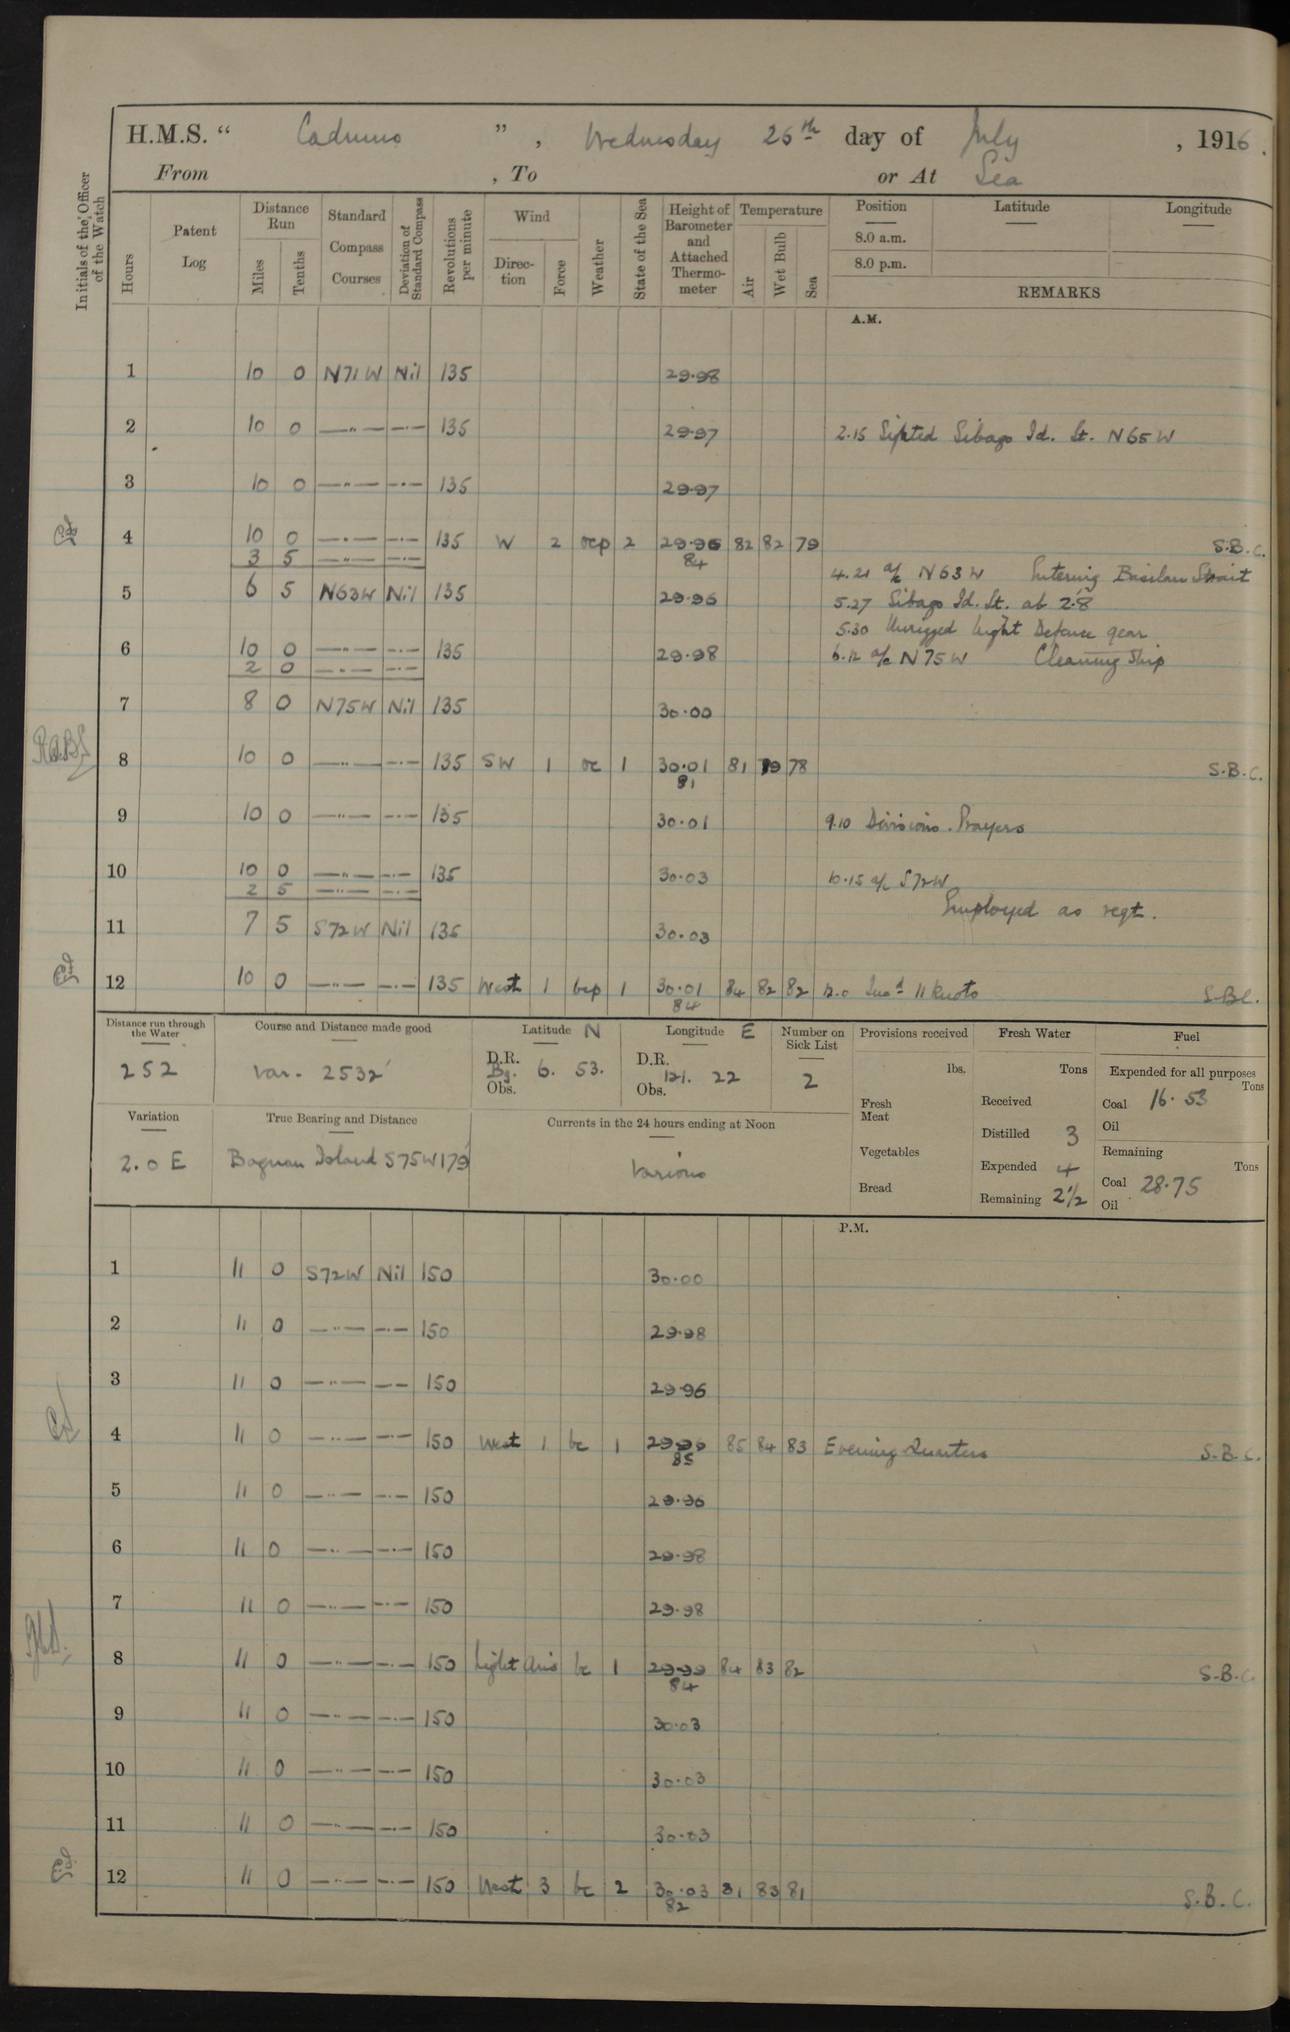 H.M.S. “ Cadmus ” , Wednesday 26th day of July , 1916.
From , To or At Sea
Initials of the Officer of the Watch
Hours
Patent Log
Distance Run
Miles
Tenths
Standard Compass Courses
Deviation of Standard Compass
Revolutions per minute
Wind
Direction
Force
Weather
State of the Sea
Height of Barometer and Attached Thermometer
Temperature
Air
Wet Bulb
Sea
Position Latitude Longitude
8.0 a.m.
8.0 p.m.
REMARKS
A.M.
1 10 0 N71W Nil 135 29.98
2 10 0 —"— —"— 135 29.97 2.15 Sighted Sibago Id. Lt. N65W
3 10 0 —"— —"— 135 29.97
4 10 0 —"— —"— 135 W 2 ocp 2 29.96 82 82 79 S.B.C.
3 5 —"— —"— 84
4.21 a/c N63W Entering Basilan Strait
5 6 5 N63W Nil 135 29.96 5.27 Sibago Id. Lt. ab 2.8'
5.30 Unrigged Night Defence gear
6 10 0 —"— —"— 135 29.98 6.12 a/c N75W Cleaning Ship
2 0 —"— —"—
7 8 0 N75W Nil 135 30.00
8 10 0 —"— —"— 135 SW 1 oc 1 30.01 81 79 78 S.B.C.
81
9 10 0 —"— —"— 135 30.01 9.10 Divisions. Prayers
10 10 0 —"— —"— 135 30.03 10.15 a/c S72W
2 5 —"— —"—
Employed as reqt.
11 7 5 S72W Nil 135 30.03
12 10 0 —"— —"— 135 West 1 bcp 1 30.01 84 82 82 12.0 Incd 11 knots S.B.C.
84
Distance run through the Water Course and Distance made good Latitude N Longitude E Number on Sick List Provisions received Fresh Water Fuel
252 Var. 2532' D.R. Bg. Obs. 6. 53. D.R. Obs. 121. 22 2
lbs. Tons Expended for all purposes Tons
Fresh Meat Received Coal 16.53
Oil
Variation True Bearing and Distance Currents in the 24 hours ending at Noon
Distilled 3
Vegetables Remaining
2.0 E Baguan Island S75W179' Various
Expended 4 Tons
Bread Coal 28.75
Remaining 21/2 Oil
P.M.
1 11 0 S72W Nil 150 30.00
2 11 0 —"— —"— 150 29.98
3 11 0 —"— —"— 150 29.96
4 11 0 —"— —"— 150 West 1 bc 1 29.96 85 84 83 Evening Quarters S.B.C.
85
5 11 0 —"— —"— 150 29.96
6 11 0 —"— —"— 150 29.98
7 11 0 —"— —"— 150 29.98
8 11 0 —"— —"— 150 Light Airs bc 1 29.99 84 83 82 S.B.C.
84
9 11 0 —"— —"— 150 30.03
10 11 0 —"— —"— 150 30.03
11 11 0 —"— —"— 150 30.03
12 11 0 —"— —"— 150 West 3 bc 2 30.03 81 83 81 S.B.C.
82